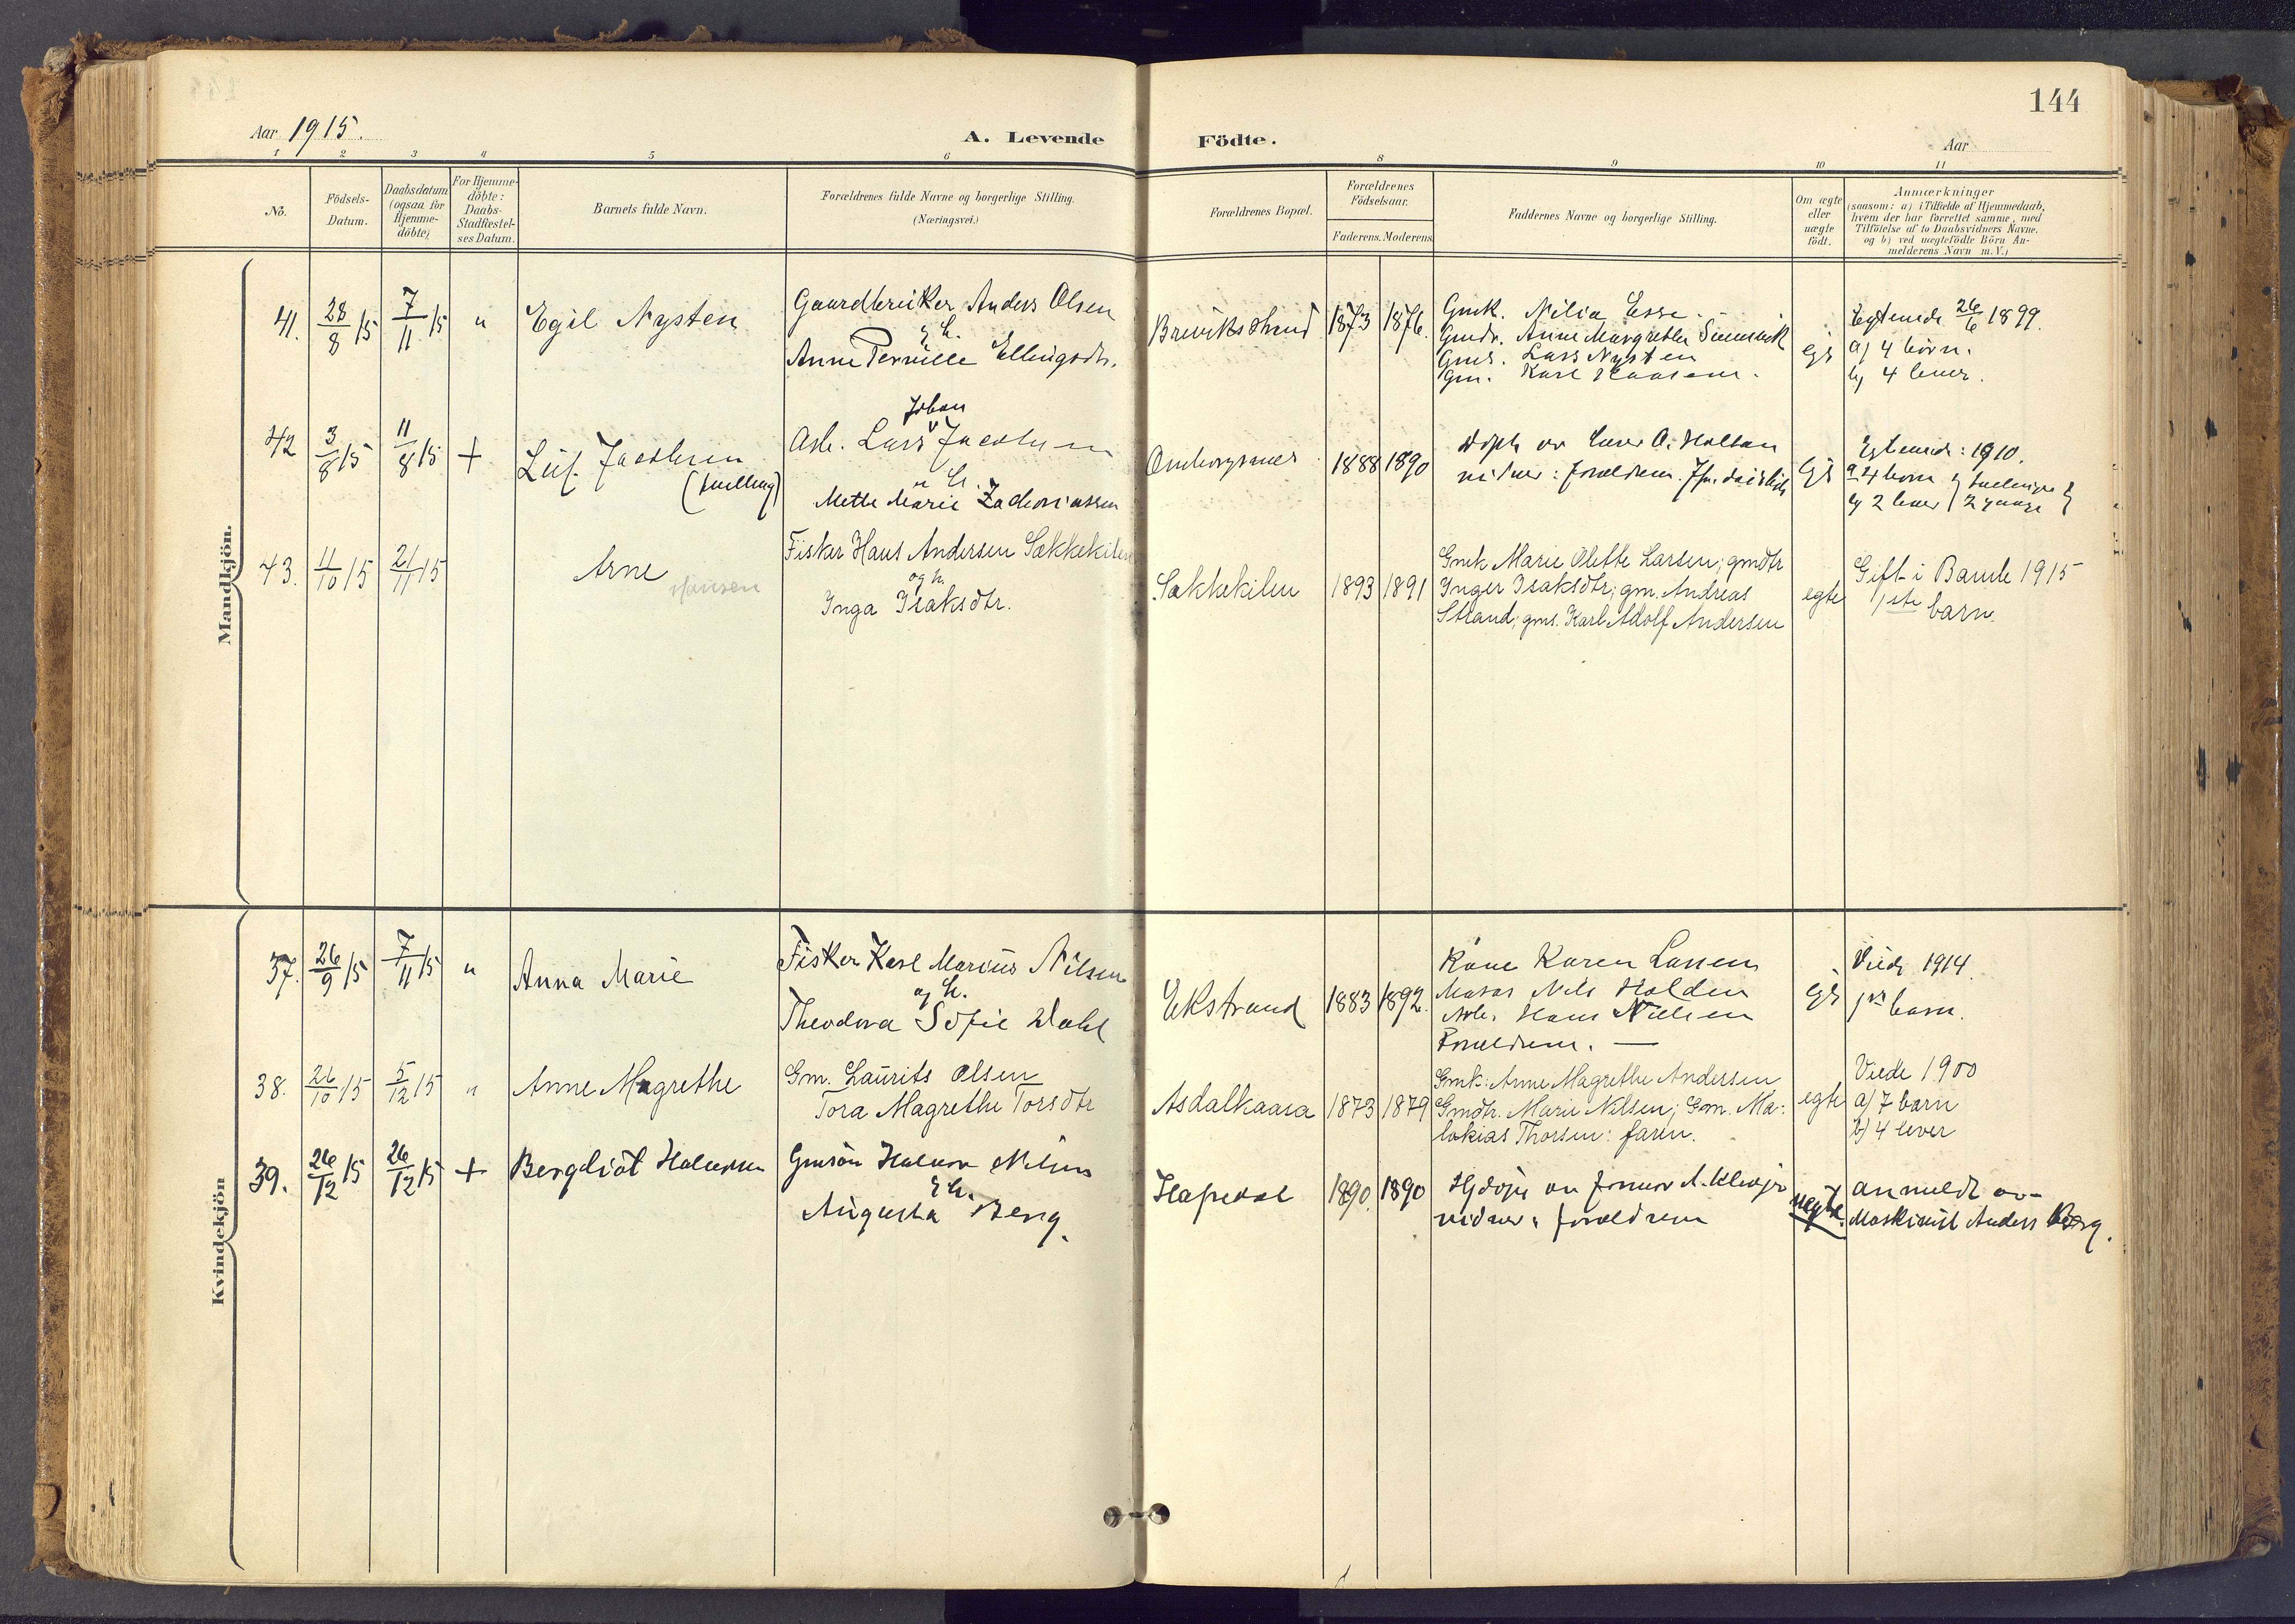 144
Aar 1915.
A. Levende Födte.
Aar
1 2 3 4 5 6 8 9 10 11
No.
Födsels-
Datum.
Daabsdatum
(ogsaa for
Hjemme-
döbte)
For Hjemme-
döbte:
Daabs-
Stadfæstel-
ses Datum.
Barnets fulde Navn.
Forældrenes fulde Navne og borgerlige Stilling.
(Næringsvei.)
Forældrenes Bopæl.
Forældrenes
Födselsaar.
Faderens. Moderens.
Faddernes Navne og borgerlige Stilling.
Om ægte
eller
uægte
födt.
Anmærkninger
(saasom: a) i Tilfælde af Hjemmedaab,
hvem der har forrettet samme, med
Tilföielse af to Daabsvidners Navne.
og b) ved uægtefödte Börn An-
melderens Navn m. V.)
Mandkjön.
41. 28/8 15 7/11 15 "
Egil Nysten
Gaardbruker Anders Olsen
Anne Pernille Ellingsdtr.
1873 1876.
Gmk.
Gmdr. Anne Margrethe
Gms. Lars Nysten
Gm. Karl
26/6 1899.
a) 4 børn.
b) 4 lever.
42 3/8 15 11/8 15 +
Leif Jacobsen
(tvilling)
Johan
Arb. Lars Jacobsen
Mette Marie Zachariassen
1888 1890
: 1910.
a) 4 børn
b) 2 lever
43. 11/10 15 21/11 15
Arne
Hansen
Fisker Hans Andersen Sækkekilen
og h.
Inga Isaksdtr.
Sækkekilen
1893 1891
Gmk Marie Olette Larsen; gmdtr
Inger Isaksdtr; gm. Andreas
Strand; gms. Karl Adolf Andersen
egte
Gift i Bamle 1915
1ste barn.
Kvindekjön
37. 26/9 15 7/11 15 "
Anna Marie
Fisker Karl Marius Nilsen
og h.
Theodora Sofie Dahl
Ekstrand
1883 1892.
Kone Karen Larsen
Nils Holden
Arb. Hans Nielsen
Forældrene. —
Viede 1914.
1ste barn.
38. 26/10 15 5/12 15 "
Anne Magrethe
Gm. Laurits Olsen
Tora Magrethe Torsdtr
Asdalkaasa
1873 1879
Gmk: Anne Magrethe Andersen
Gmdtr. Marie Nilsen; Gm. Ma-
lakias Thorsen: faren.
egte
Viede 1900
a) 7 barn
b) 4 lever
39. 26/12 15 26/12 15 +
Bergliot Halvorsen
Gmsøn Halvor Nilsen
Augusta Berg.
1890. 1890
vidner: forældrene
uegte.
anmeldt av
Maskinist Anders Berg.